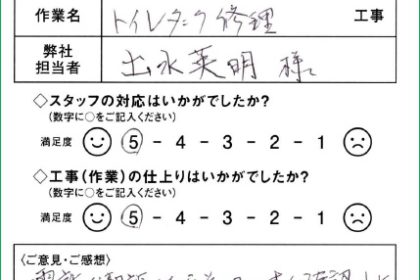 作業名 トイレタンク修理 工事
弊社
担当者 出水英明 様
◇スタッフの対応はいかがでしたか?
(数字に○をご記入ください)
満足度 5 - 4 - 3 - 2 - 1
◇工事(作業)の仕上りはいかがでしたか?
(数字に○をご記入ください)
満足度 5 - 4 - 3 - 2 - 1
〈ご意見・ご感想〉